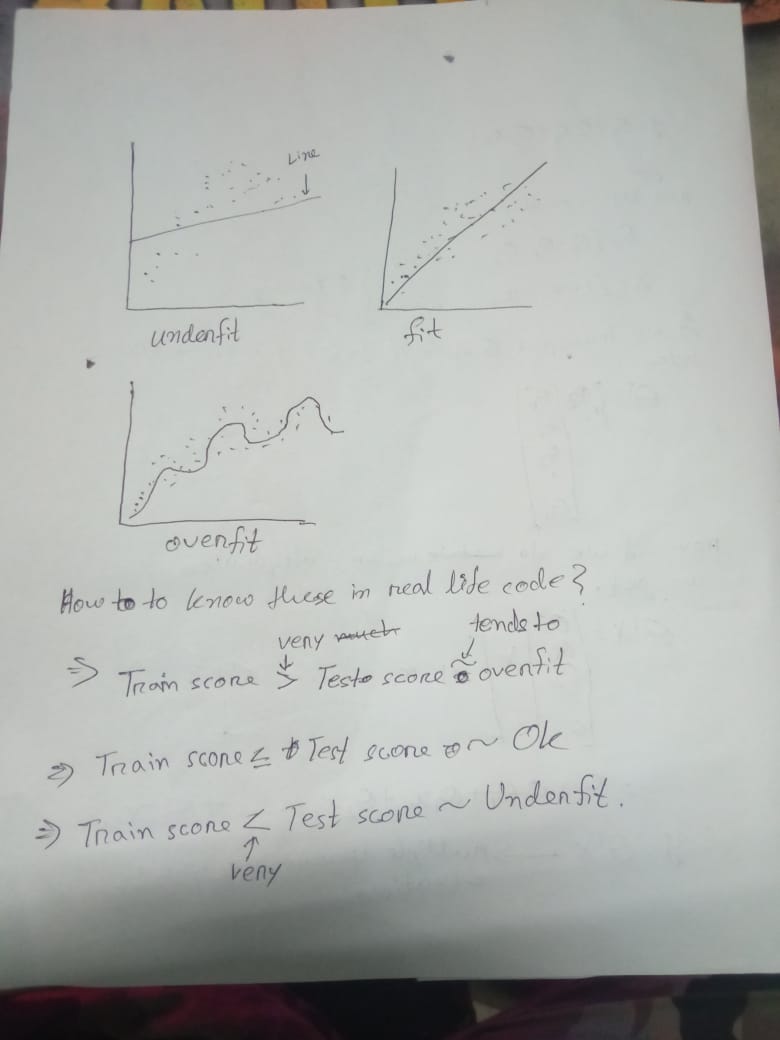 Line
underfit
fit
overfit
How to to know these in real life code?
very much tends to
⇒ Train score > Test score ~ overfit
⇒ Train score ≤ Test score ~ Ok
⇒ Train score < Test score ~ Underfit.
↑
very